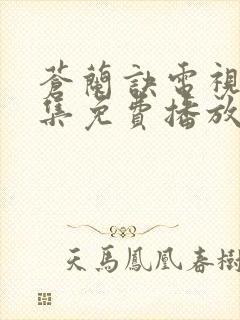 蒼蘭訣電視
集免費播放
天馬鳳凰春樹